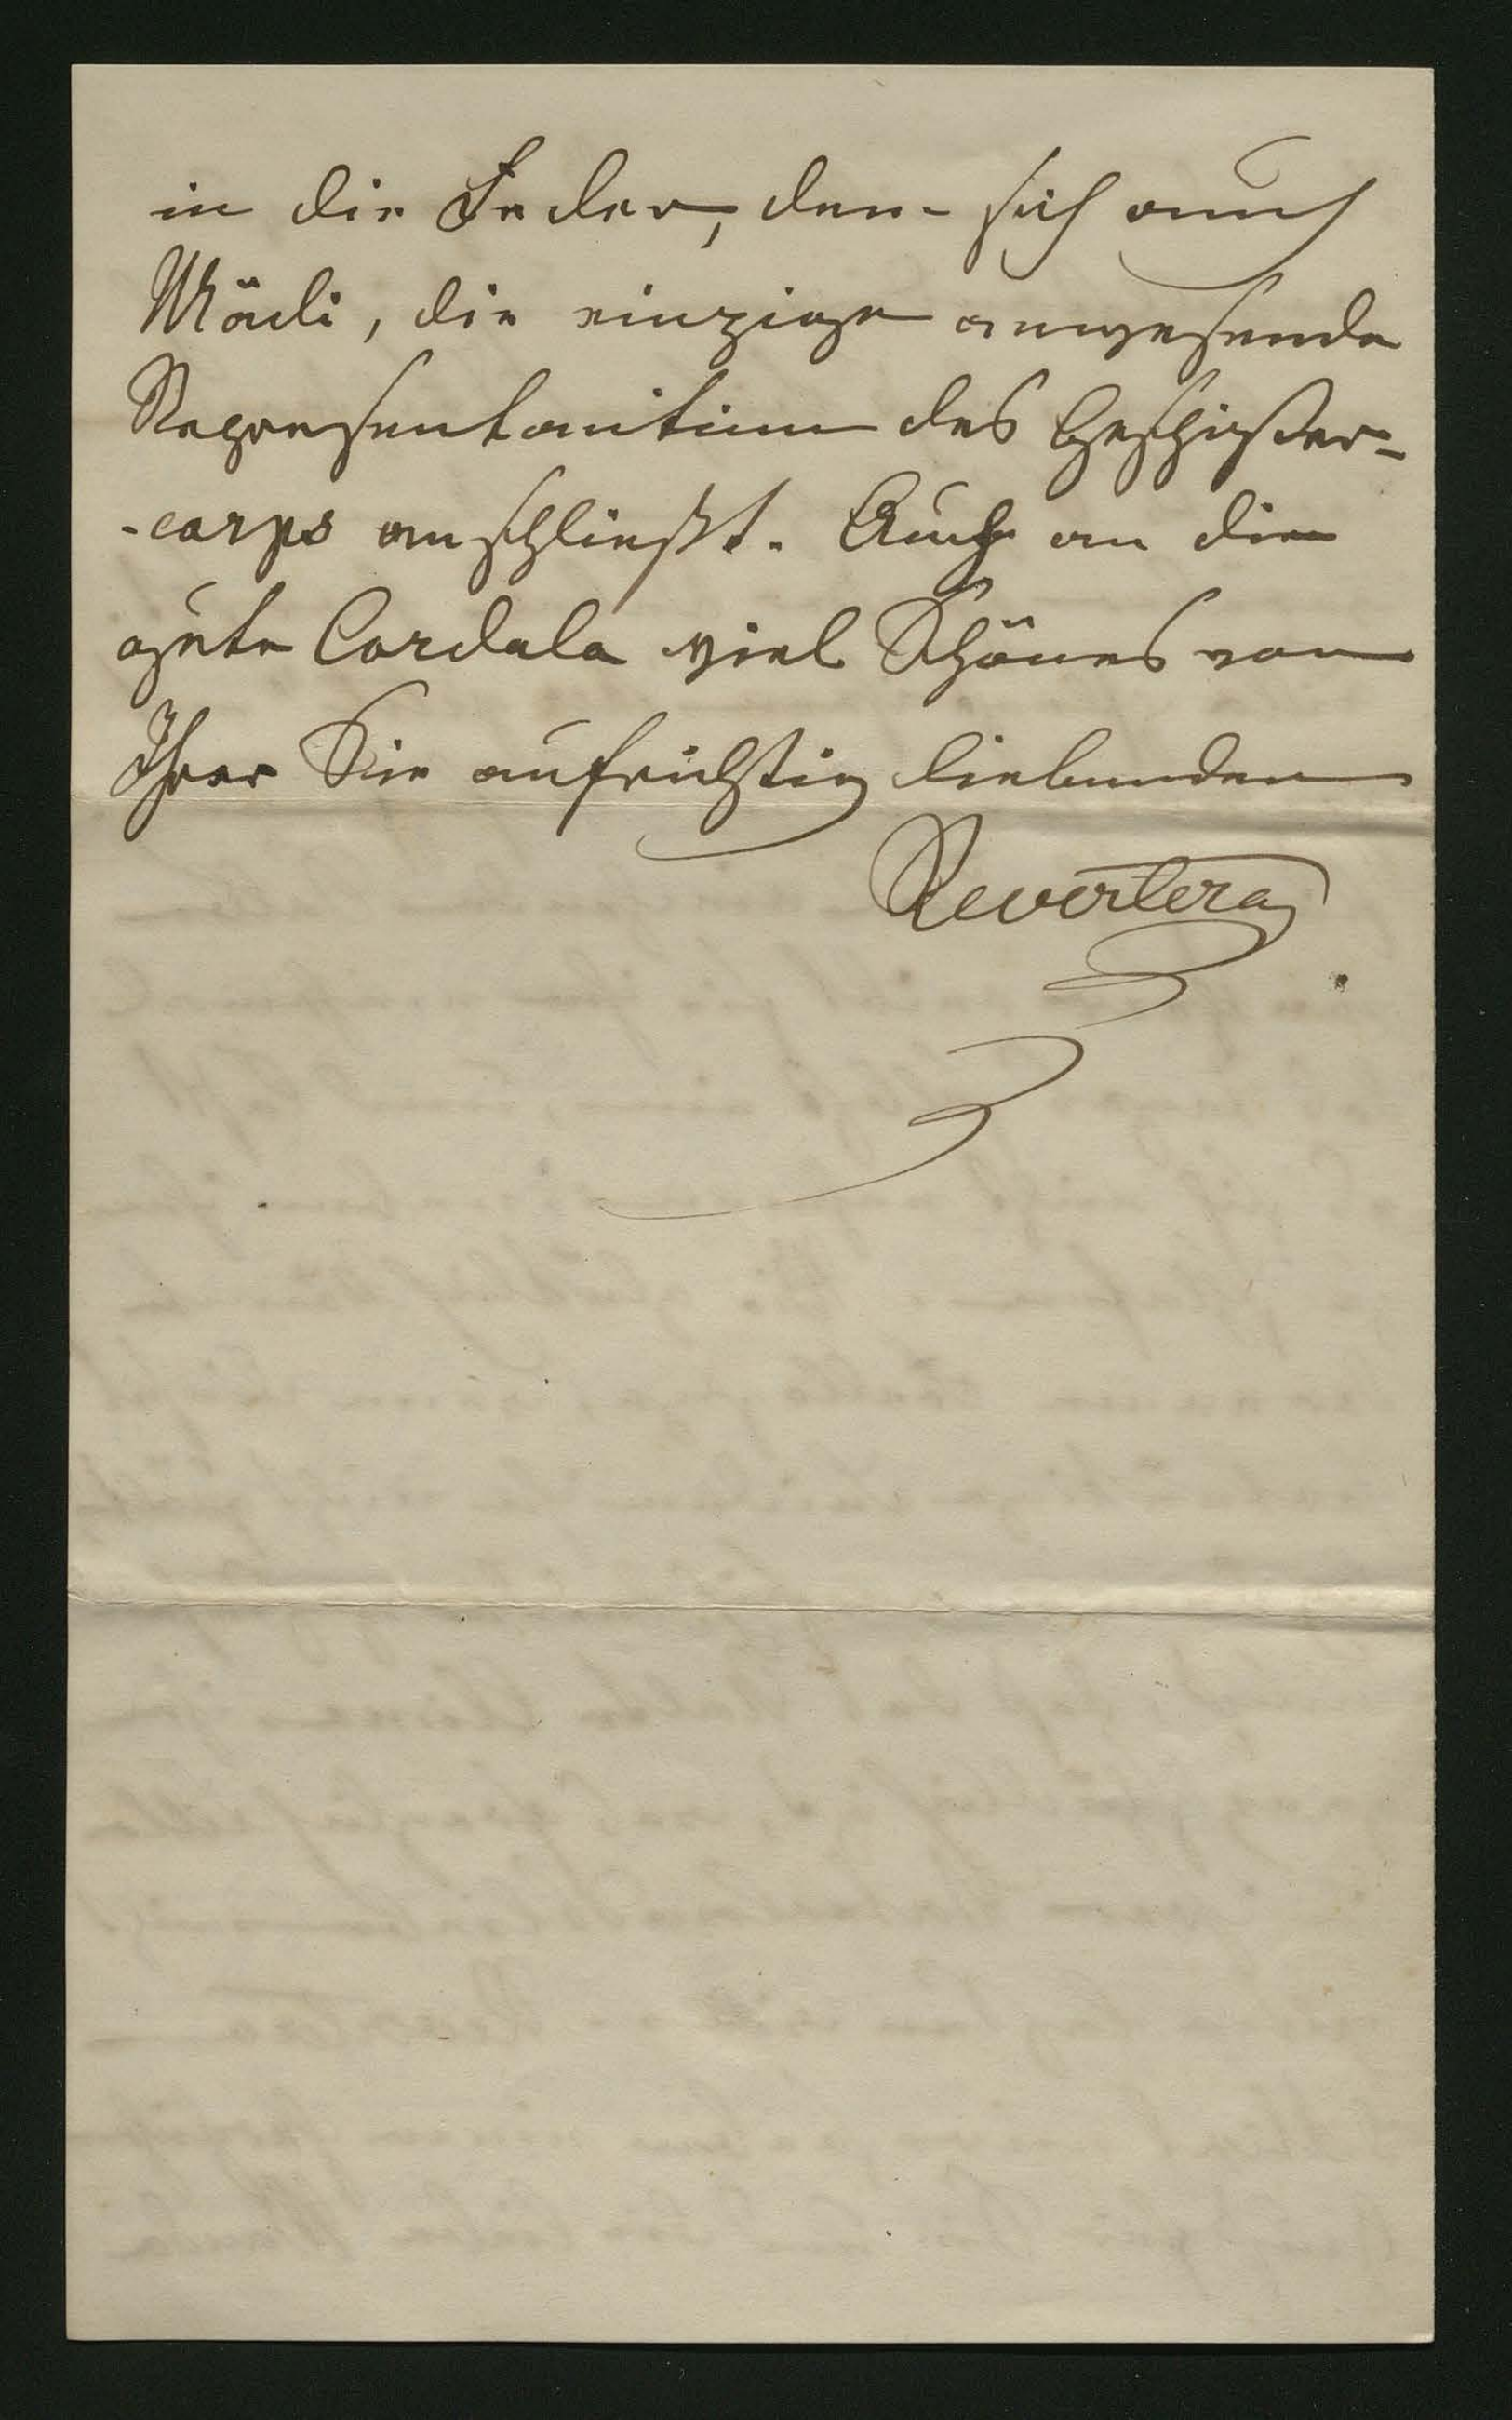 in die Feder, dem sich auch
Mädi, die einzige anwesende
Representantinn des Geschwister-
-corps anschließt. Auch an die
gute Cordula viel Schönes von
Ihrer Sie aufrichtig liebenden
Revertera